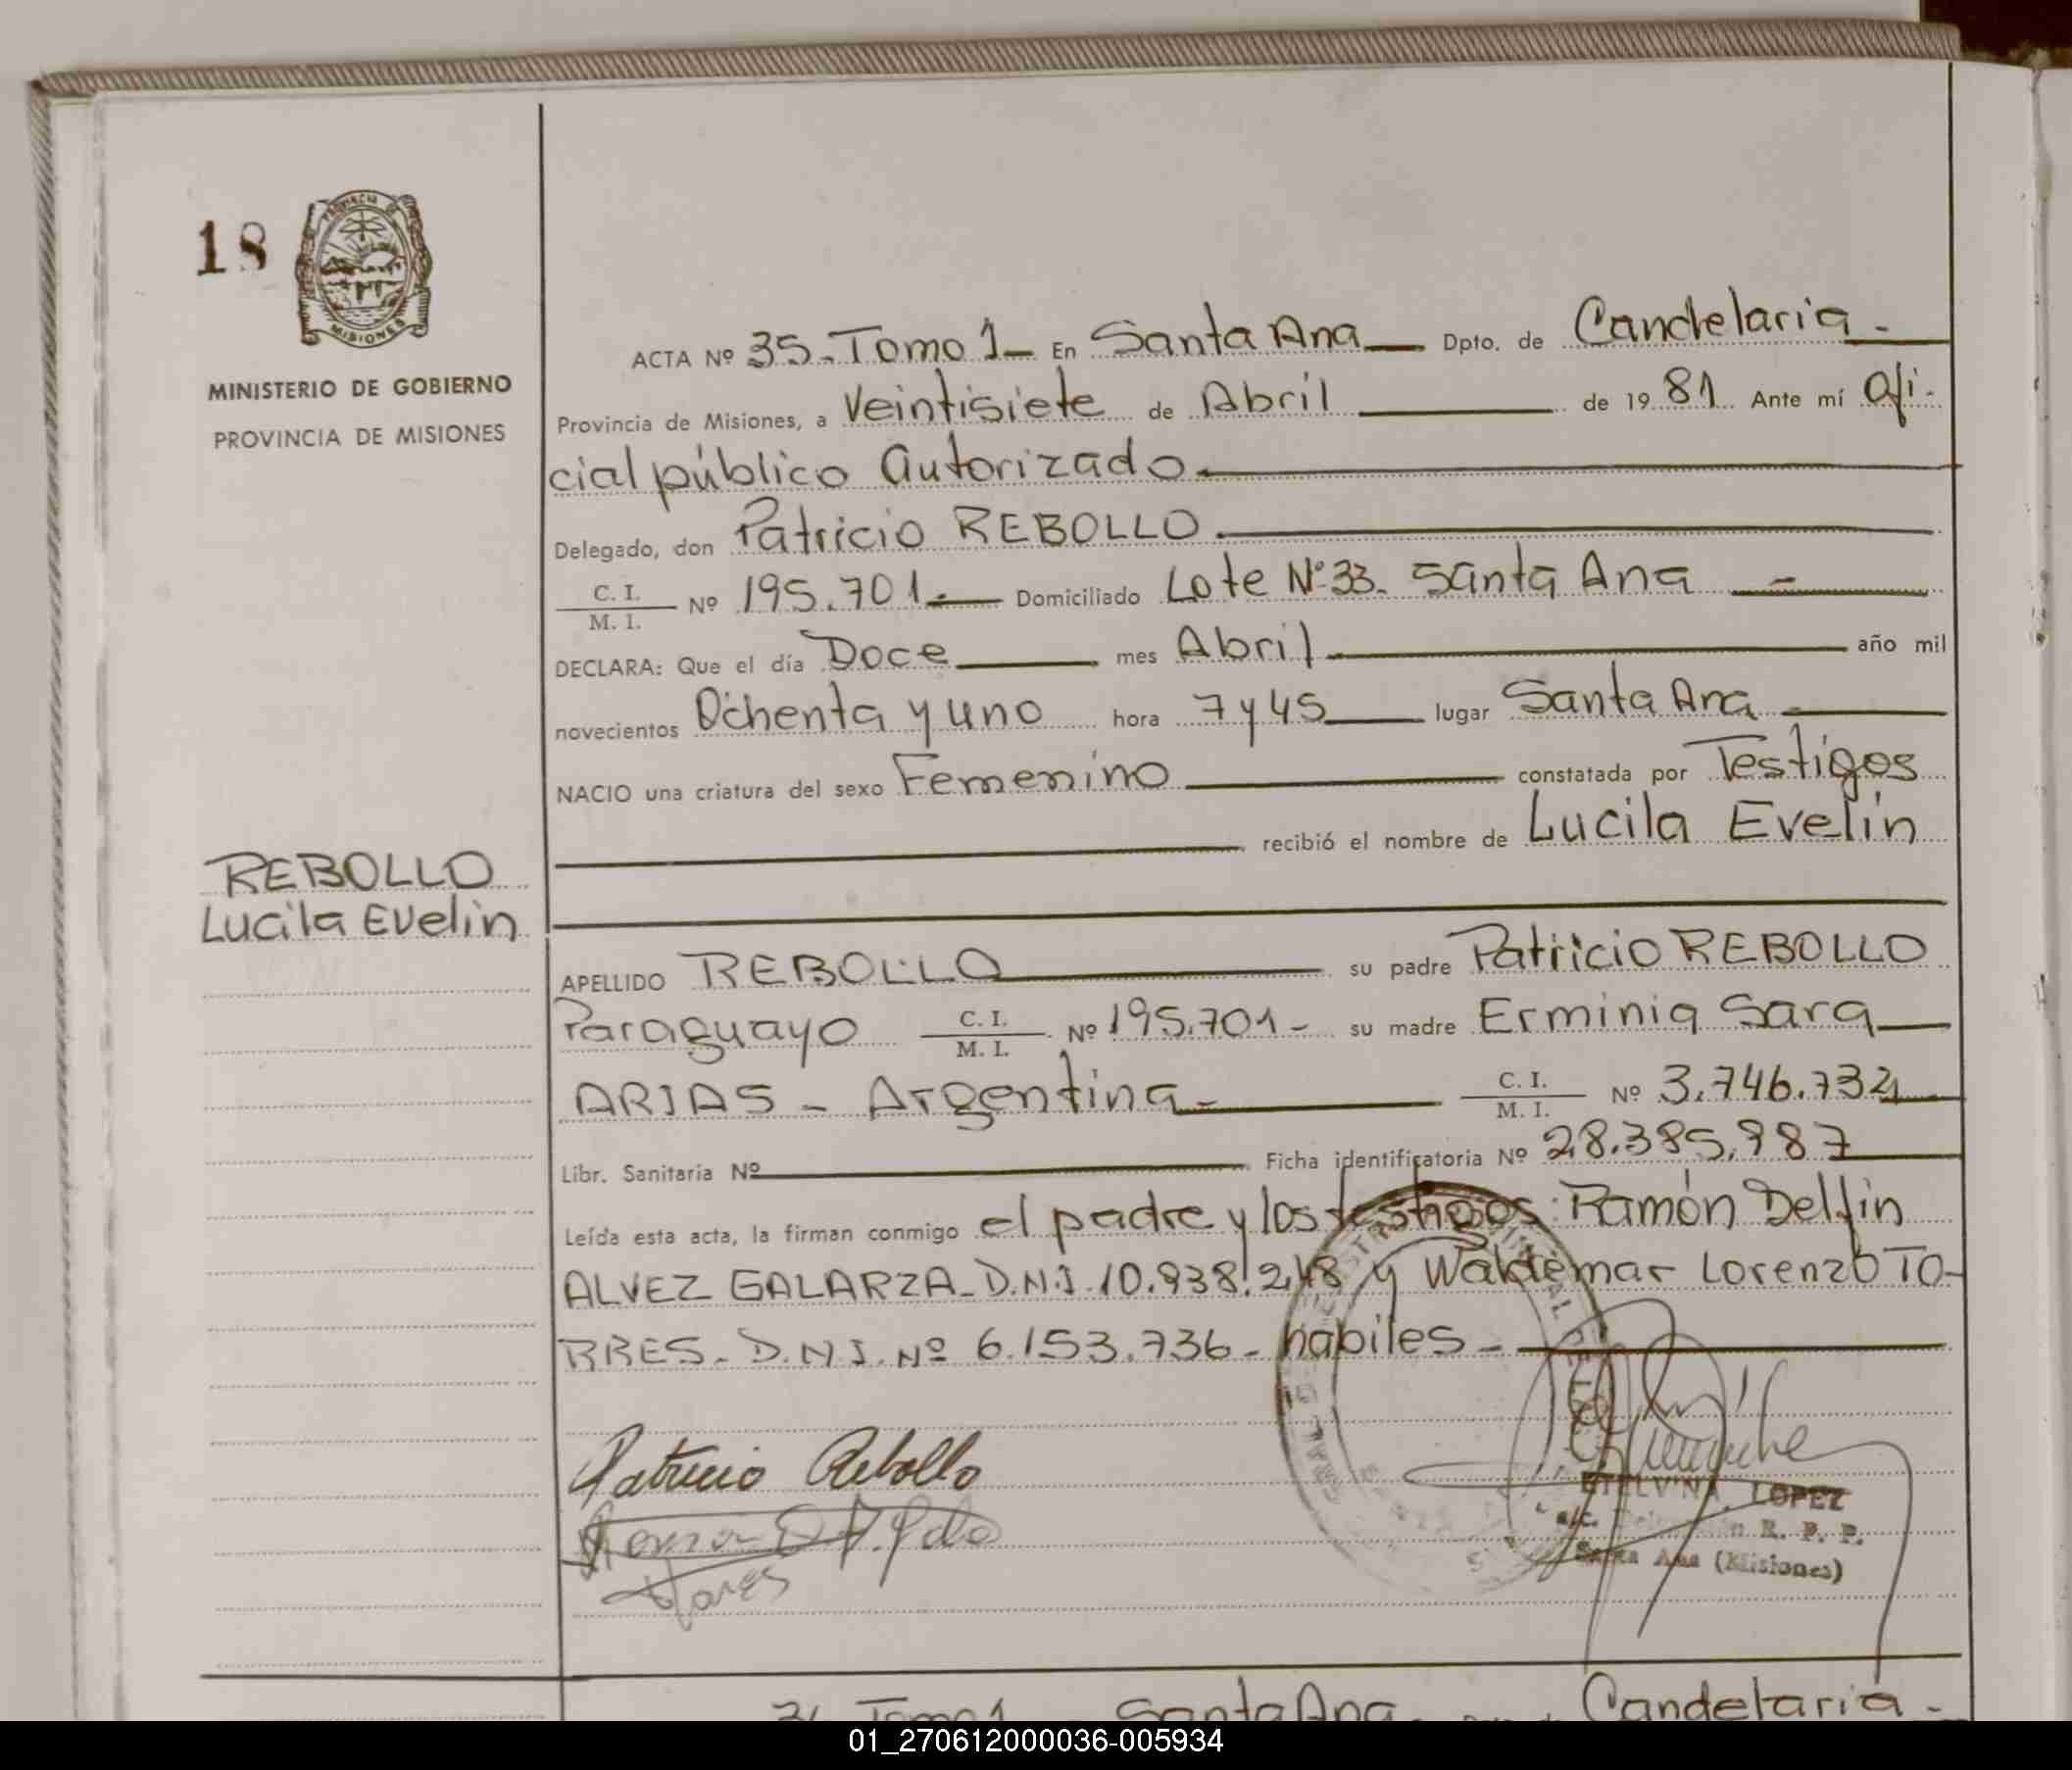 18
PROVINCIA DE
MISIONES
MINISTERIO DE GOBIERNO
PROVINCIA DE MISIONES
REBOLLO
Lucila Evelin
ACTA Nº 35.Tomo 1 En Santa Ana Dpto. de Candelaria.
Provincia de Misiones, a Veintisiete de Abril de 1981 Ante mí Ofi-
cial público Autorizado
Delegado, don Patricio REBOLLO
C. I. / M. I. Nº 195.701.- Domiciliado Lote Nº 33. Santa Ana -
DECLARA: Que el día Doce mes Abril año mil
novecientos Ochenta y uno hora 7 y 45 lugar Santa Ana
NACIO una criatura del sexo Femenino constatada por Testigos
recibió el nombre de Lucila Evelin
APELLIDO REBOLLO su padre Patricio REBOLLO
Paraguayo C. I. / M. I. Nº 195.701- su madre Erminia Sara
ARIAS - Argentina- C. I. / M. I. Nº 3.746.732
Libr. Sanitaria Nº Ficha identificatoria Nº 28.385.987
Leída esta acta, la firman conmigo el padre y los testigos: Ramón Delfin
ALVEZ GALARZA- D.N.I. 10.938.248 y Waldemar Lorenzo TO-
RRES- D.N.I. Nº 6.153.736- habiles-
Patricio Rebollo
ETELVINA LOPEZ
a/c. R. P. P.
Santa Ana (Misiones)
Tomo 1 Santa Ana Candelaria-
01_270612000036-005934